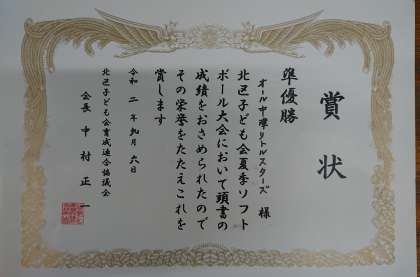 賞状
準優勝
オール中準リトルスターズ 様
北区子ども会夏季ソフト
ボール大会において頭書の
成績をおさめられたので
その栄誉をたたえこれを
賞します
令和二年九月六日
北区子ども会育成連合協議会
会長 中村正一